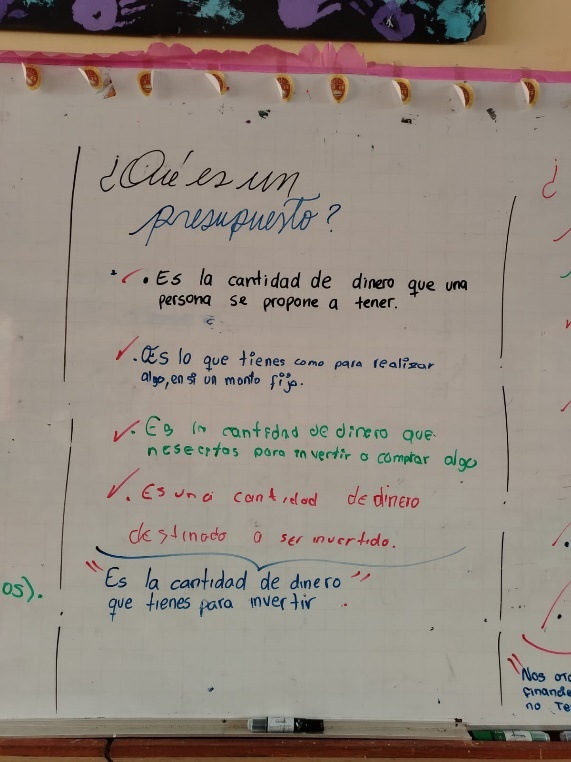 ¿Qué es un
presupuesto?
• Es la cantidad de dinero que una
persona se propone a tener.
• Es lo que tienes como para realizar
algo, en si un monto fijo.
• Es la cantidad de dinero que
nesecitas para invertir o comprar algo
• Es una cantidad de dinero
destinado a ser invertido.
"Es la cantidad de dinero"
que tienes para invertir.
os).
¿
"Nos
no